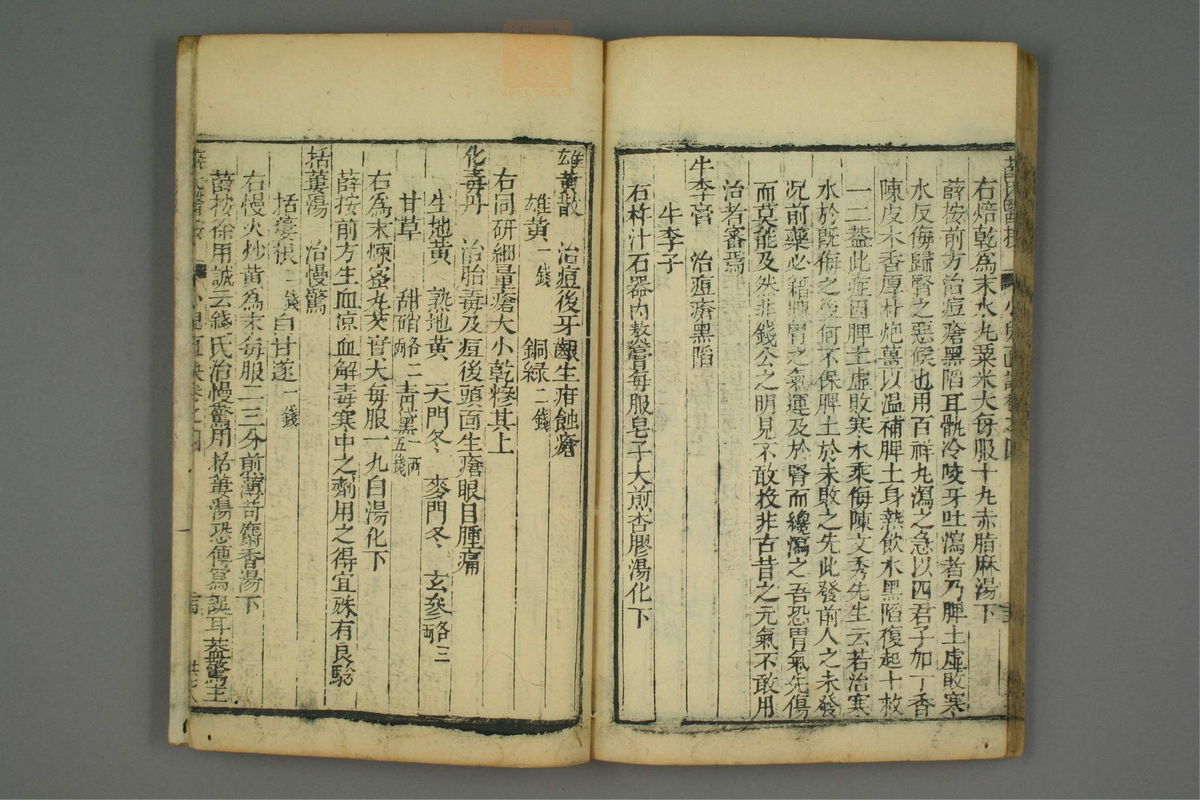 右焙乾為末水丸粟米大每服十丸赤脂麻湯下
薛按前方治痘瘡黑陷耳骫冷咬牙吐瀉者乃脾土虛敗寒
水反侮歸腎之惡候也用百祥丸瀉之急以四君子加丁香
陳皮木香厚朴炮薑以溫補脾土身熱飲水黑陷復起十救
一二蓋此症因脾土虛敗寒水乘侮陳文秀先生云若治寒
水於既侮之後何不保脾土於未敗之先此發前人之未發
況前藥必籍脾胃之氣運及於腎而纔瀉之吾恐胃氣先傷
而莫能及然非錢公之明見不敢投非古昔之元氣不敢用
治者審焉
牛李膏　治痘瘡黑陷
牛李子
右杵汁石器內熬膏每服皂子大煎杏膠湯化下
雄黃散　治痘後牙齦生疳蝕瘡
雄黃一錢　銅綠二錢
右同研細量瘡大小乾糝其上
化毒丹　治胎毒及痘後頭面生瘡眼目腫痛
生地黃　熟地黃　天門冬　麥門冬　玄參各三兩
甘草　甜硝各二兩　青黛一兩五錢
右為末煉蜜丸芡實大每服一丸白湯化下
薛按前方生血凉血解毒寒中之劑用之得宜殊有良驗
括蔞湯　治慢驚
括蔞根二錢　白甘遂一錢
右慢火炒黃為末每服二三分煎薄苛麝香湯下
薛按徐用誠云錢氏治慢驚用括蔞湯恐傳寫誤耳蓋驚主
薛氏醫按　小兒直訣卷之四